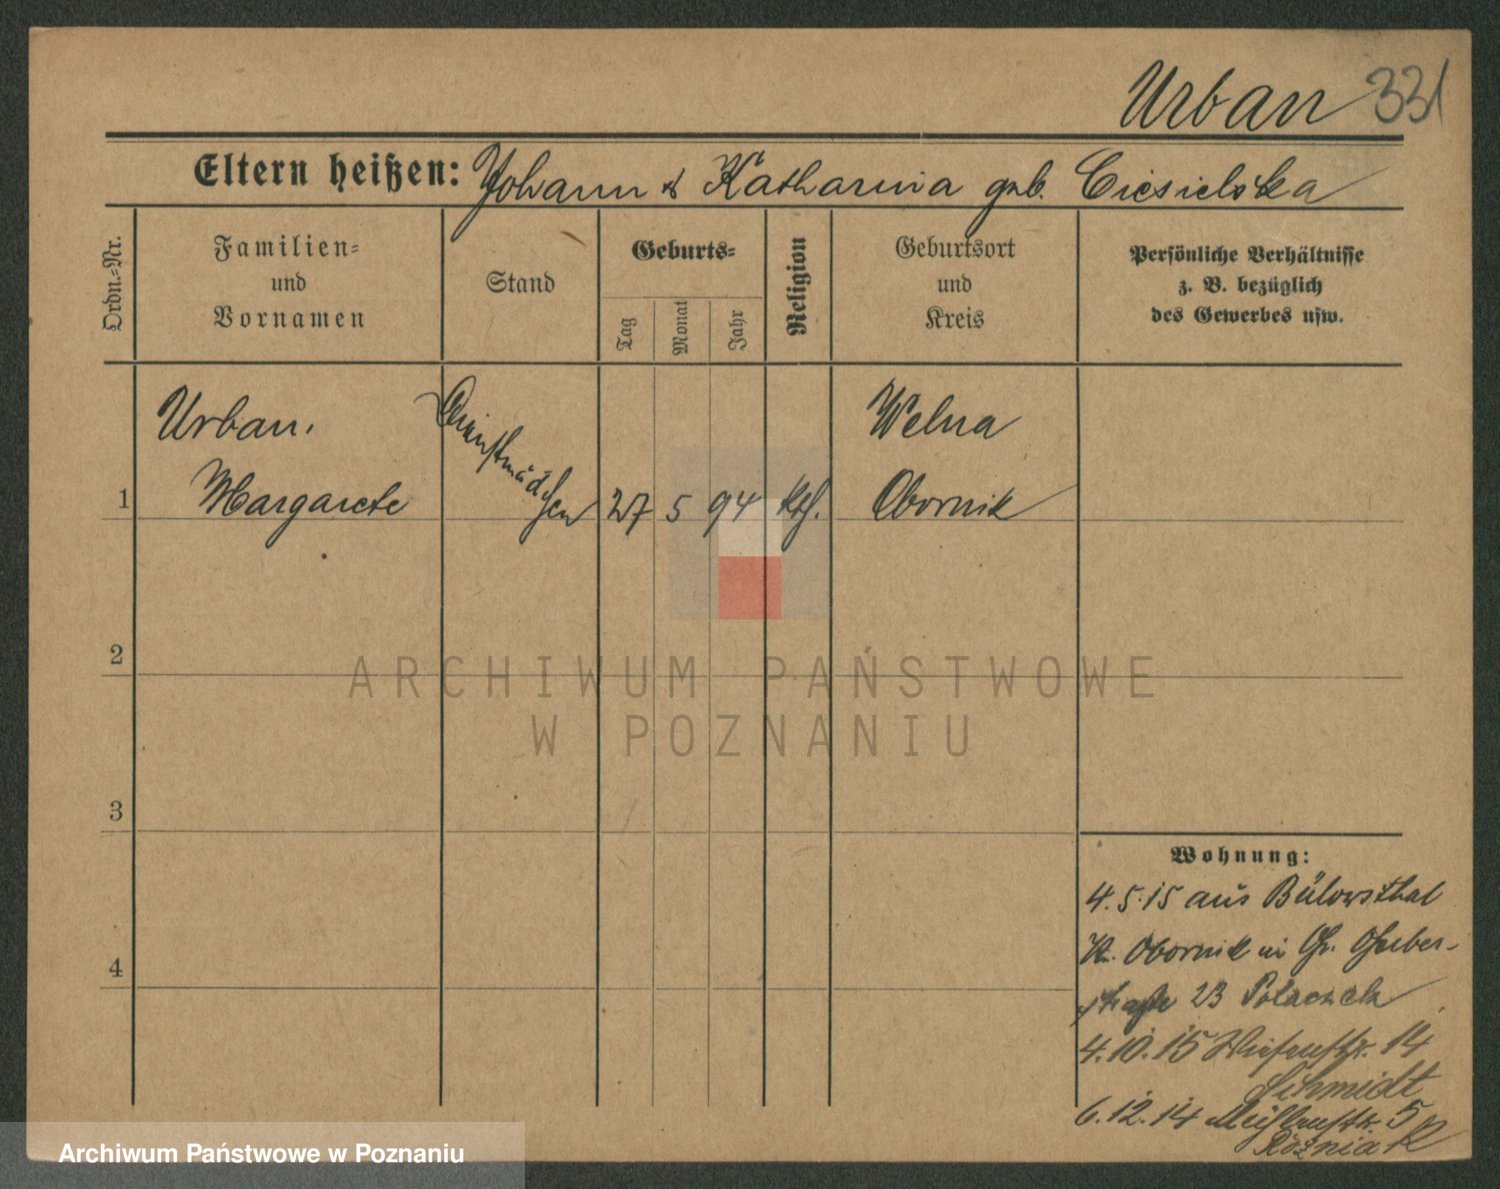 Urban 331
Eltern heißen: Johann & Katharina geb. Ciesielska
Ordn.-Nr.
Familien-
und
Vornamen
Stand
Geburts-
Tag
Monat
Jahr
Religion
Geburtsort
und
Kreis
Persönliche Verhältnisse
z. B. bezüglich
des Gewerbes usw.
Urban.
Welna
1 Margarete Dienstmädchen 27 5 94 kth. Obornik
2
3
4
Wohnung:
4.5.15 aus Bülowsthal
Kr. Obornik in Gr. Gerber-
straße 23 Polaczek
4.10.15 Wiesenstr. 14
Schmidt
6.12.14 Mühlenstr. 5
Rożniak
ARCHIWUM PAŃSTWOWE
W POZNANIU
Archiwum Państwowe w Poznaniu